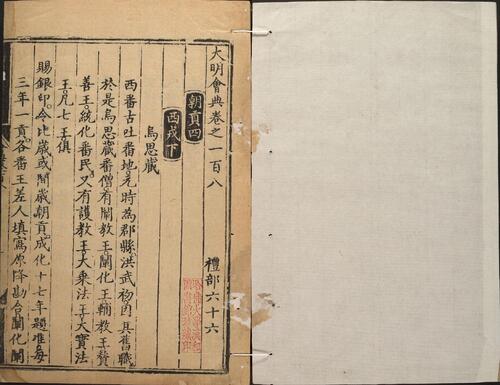 大明會典卷之一百八
禮部六十六
朝貢四
西戎下
烏思藏
西番古吐番地元時為郡縣洪武初因其舊職
於是烏思藏番僧有闡教王闡化王輔教王贊
善王統化番民又有護教王大乘法王大寶法
王凡七王俱
賜銀印令比歲或間歲朝貢成化十七年題准每
三年一貢各番王差人填寫原降勘合闡化闡